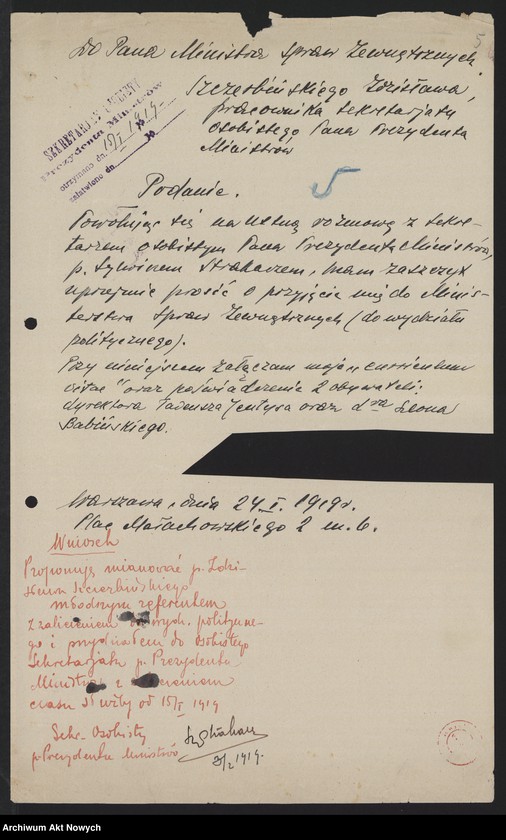 Do Pana Ministra Spraw Zewnętrznych.
5
SEKRETARJAT OSOBISTY
Prezydenta Ministrów
otrzymano dn. 15/I 1919
załatwiono dn.
Szczerbińskiego Zdzisława,
pracownika sekretarjatu
osobistego Pana Prezydenta
Ministrów
5
Podanie.
Powołując się na ustną rozmowę z sekre-
tarzem osobistym Pana Prezydenta Ministrów,
p. Sylwinem Strakaczem, mam zaszczyt
uprzejmie prosić o przyjęcie mię do Minis-
terstwa Spraw Zewnętrznych (do wydziału
politycznego).
Przy niniejszem załączam moje „curriculum
vitae" oraz poświadczenie 2 obywateli:
dyrektora Tadeusza Jentysa oraz dra Leona
Babińskiego.
Warszawa, dnia 24 I. 1919 r.
Plac Małachowskiego 2 m. 6.
Wniosek
Proponuję mianować p. Zdzi-
sława
młodszym referentem
z zaliczeniem politыczne-
go i przydziałem do osobistego
Sekretarjatu p. Prezydenta
Ministrów z
czasu służby od 15/I 1919
Sekr. Osobisty
p Prezydenta Ministrów
SylStrakacz
1919.
Archiwum Akt Nowych